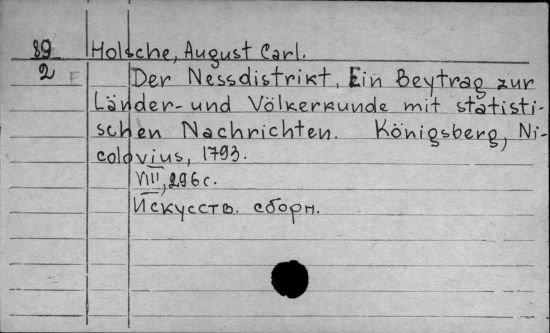 89 Holsche, August Carl.
2 E Der Nessdistrikt, Ein Beytrag zur
Länder- und Völkerkunde mit statisti-
schen Nachrichten. Königsberg, Ni-
colovius, 1793.
VIII, 296 с.
Искусств. сборн.